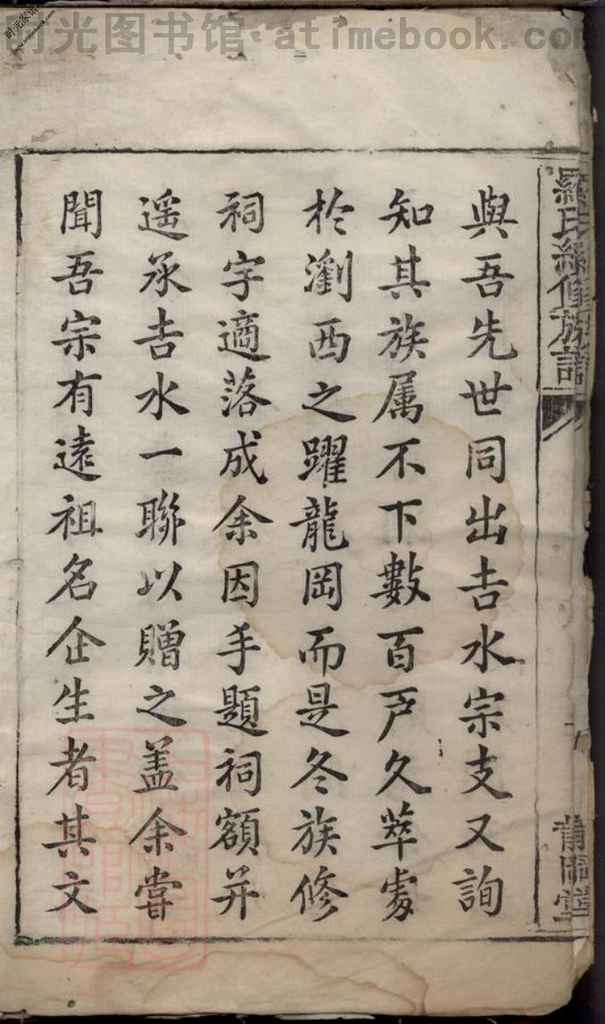 时光图书馆·atimebook.com
與吾先世同出吉水宗支又詢
知其族属不下數百戸久萃處
於瀏西之躍龍岡而是冬族修
祠宇適落成余因手題祠額并
遥承吉水一聯以贈之盖余嘗
聞吾宗有遠祖名企生者其文
羅氏續修族譜